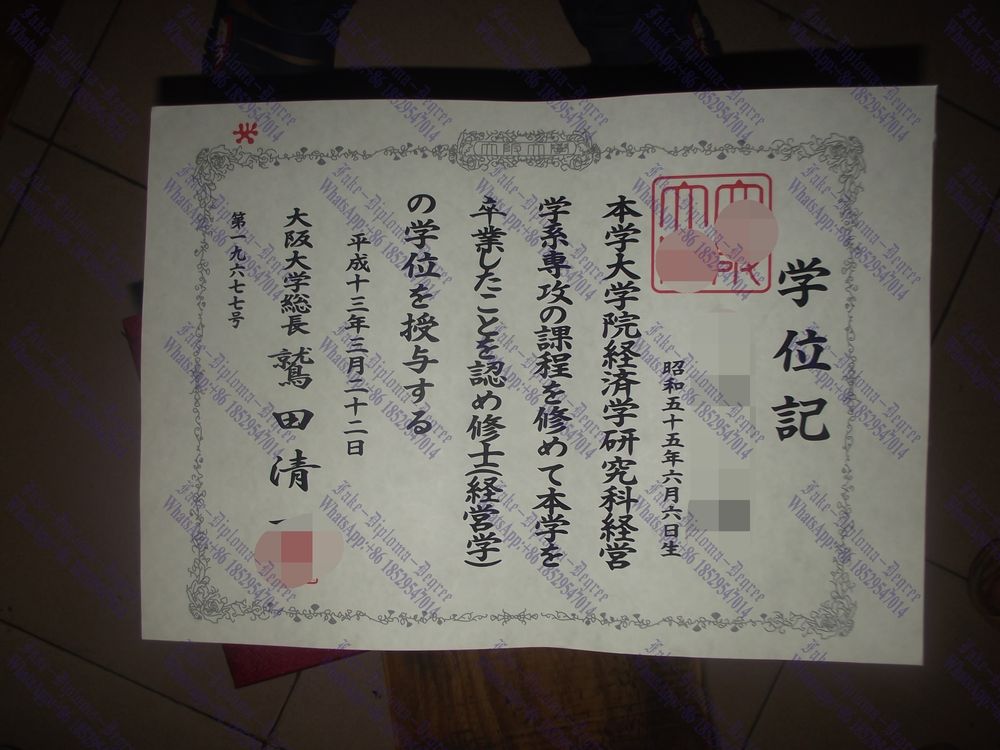 大阪大学
学位記
昭和五十五年六月六日生
本学大学院経済学研究科経営
学系専攻の課程を修めて本学を
卒業したことを認め修士(経営学)
の学位を授与する
平成十三年三月二十二日
大阪大学総長 鷲田清一
第一九六七七号
Fake-Diploma-Degree
WhatsApp:+86 18529547014